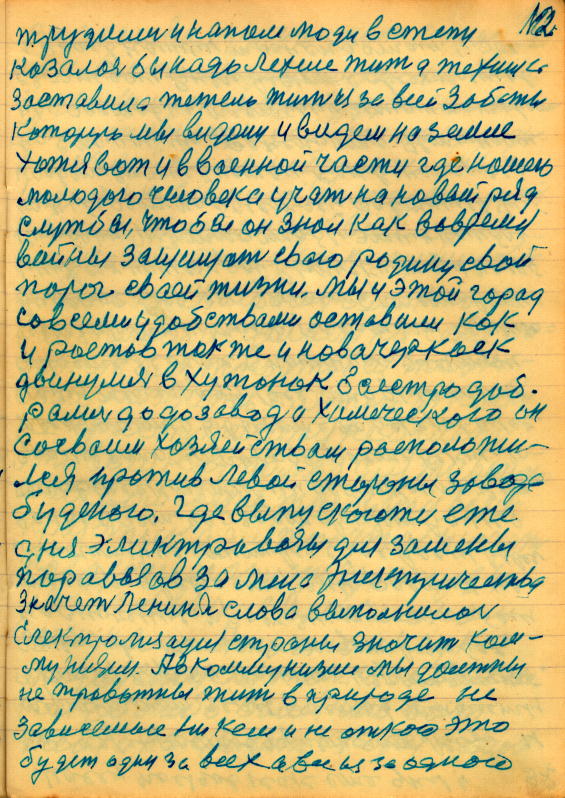 112.
трудили и напали люди в степи
козалоя бы надо лехше жит а техника
заставила тежель жит из за всей заботы
которую мы видоли и видем на земле
хотя вот и в военной части где ношево
молодого человека учат на новый ряд
службы, чтобы он знол как вовремя
войны защищат свою родину свой
порог своей жизни. Мы и этой город
совсеми удобствами оставили как
и ростов также и новачеркаск
двинулия в хутонок быстро доб.
ралия додозавода химического он
сосвоим хозяйствам росположи-
лся против левой стороны завода
буденого. Где выпускоют еже
дня электравозы для замены
поравозав
значет Ленина слова выполнилоя
Електролизация страны значит ком-
мунизм. А в коммунизм мы должны
не жит в природе не
зависемые ни кем и не откого это
будет один за всех а все из за одного